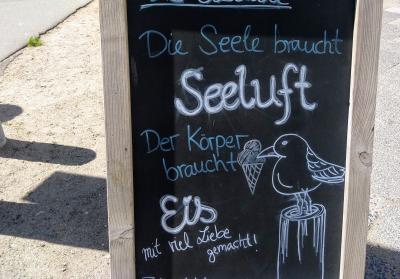 Die Seele braucht
Seeluft
Der Körper
braucht
Eis
mit viel Liebe
gemacht!